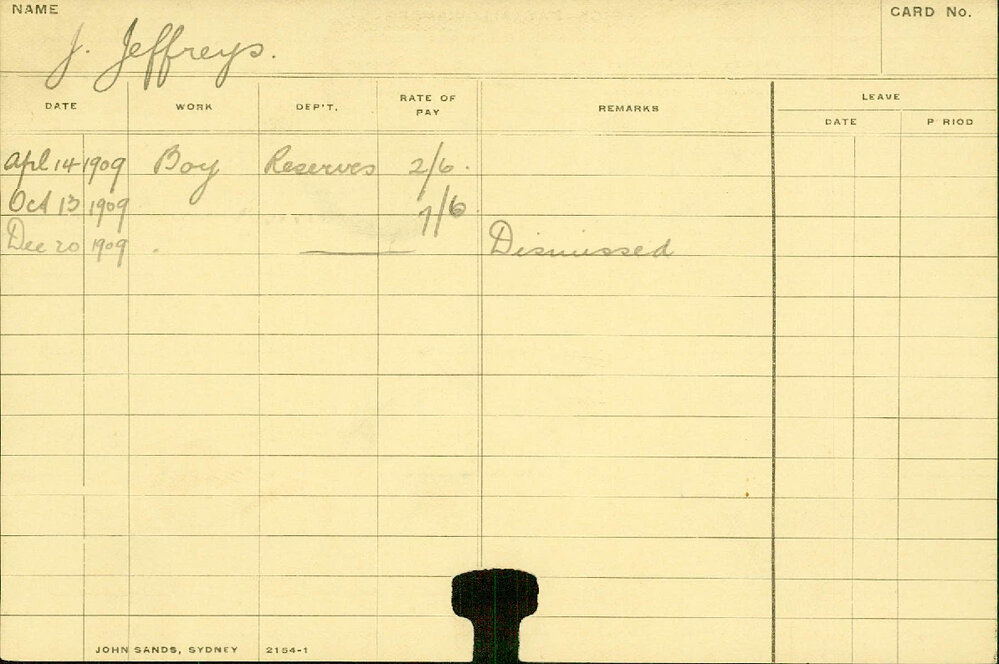 NAME
CARD No.
J. Jeffreys.
DATE WORK DEP'T. RATE OF PAY REMARKS LEAVE
DATE P RIOD
Apl 14 1909 Boy Reserves 2/6.
Oct 13 1909 7/6
Dec 20 1909 . Dismissed
JOHN SANDS, SYDNEY 2154-1